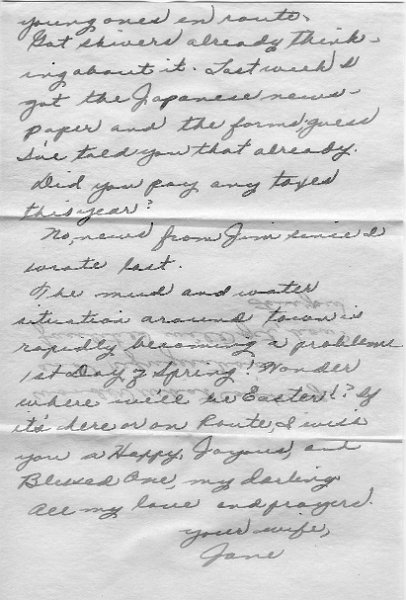 young ones en route.
Got shivers already think-
ing about it. Last week I
got the Japanese news-
paper and the forms, guess
I've told you that already.
Did you pay any taxes
this year?
No, news from Jim since I
wrote last.
The mud and water
situation around town is
rapidly becoming a problem.
1st Day of Spring! Wonder
where we'll be Easter!? If
it's here or on Route, I wish
you a Happy, Joyous, and
Blessed One, my darling
All my love and prayers.
your wife,
Jane